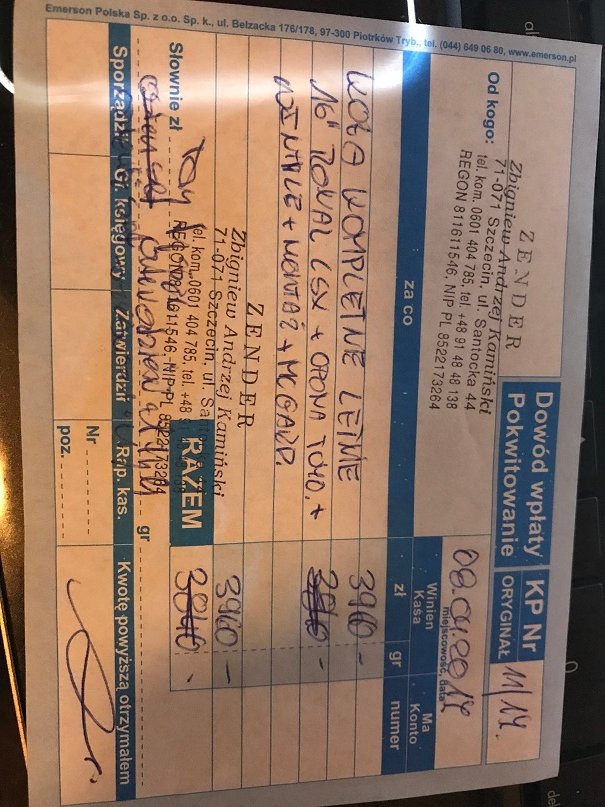 Dowód wpłaty
Pokwitowanie
KP Nr
ORYGINAŁ
11/14.
ZENDER
Zbigniew Andrzej Kamiński
71-071 Szczecin, ul. Santocka 44
tel. kom. 0601 404 785, tel. +48 91 48 48 138
REGON 811611546, NIP PL 8522173264
Od kogo:
miejscowość, data
za co
Winien
Kasa
zł
gr
Ma
Konto
numer
KOŁA KOMPLETNE LETNIE
3960 -
16" RONAL LSX + OPONA TOYO. +
WENTYLE + MONTAŻ + MCGARD.
ZENDER
Zbigniew Andrzej Kamiński
71-071 Szczecin, ul. Santocka
tel. kom. 0601 404 785, tel. +48
REGON 811611546, NIP PL 8522173264
3960 -
RAZEM
Słownie zł
gr
Sporządził
Gr. księgowy
Zatwierdził
Rap. kas.
Kwotę powyższą otrzymałem
Nr
poz.
Emerson Polska Sp. z o.o. Sp. k., ul. Belzacka 176/178, 97-300 Piotrków Tryb., tel. (044) 649 06 80, www.emerson.pl